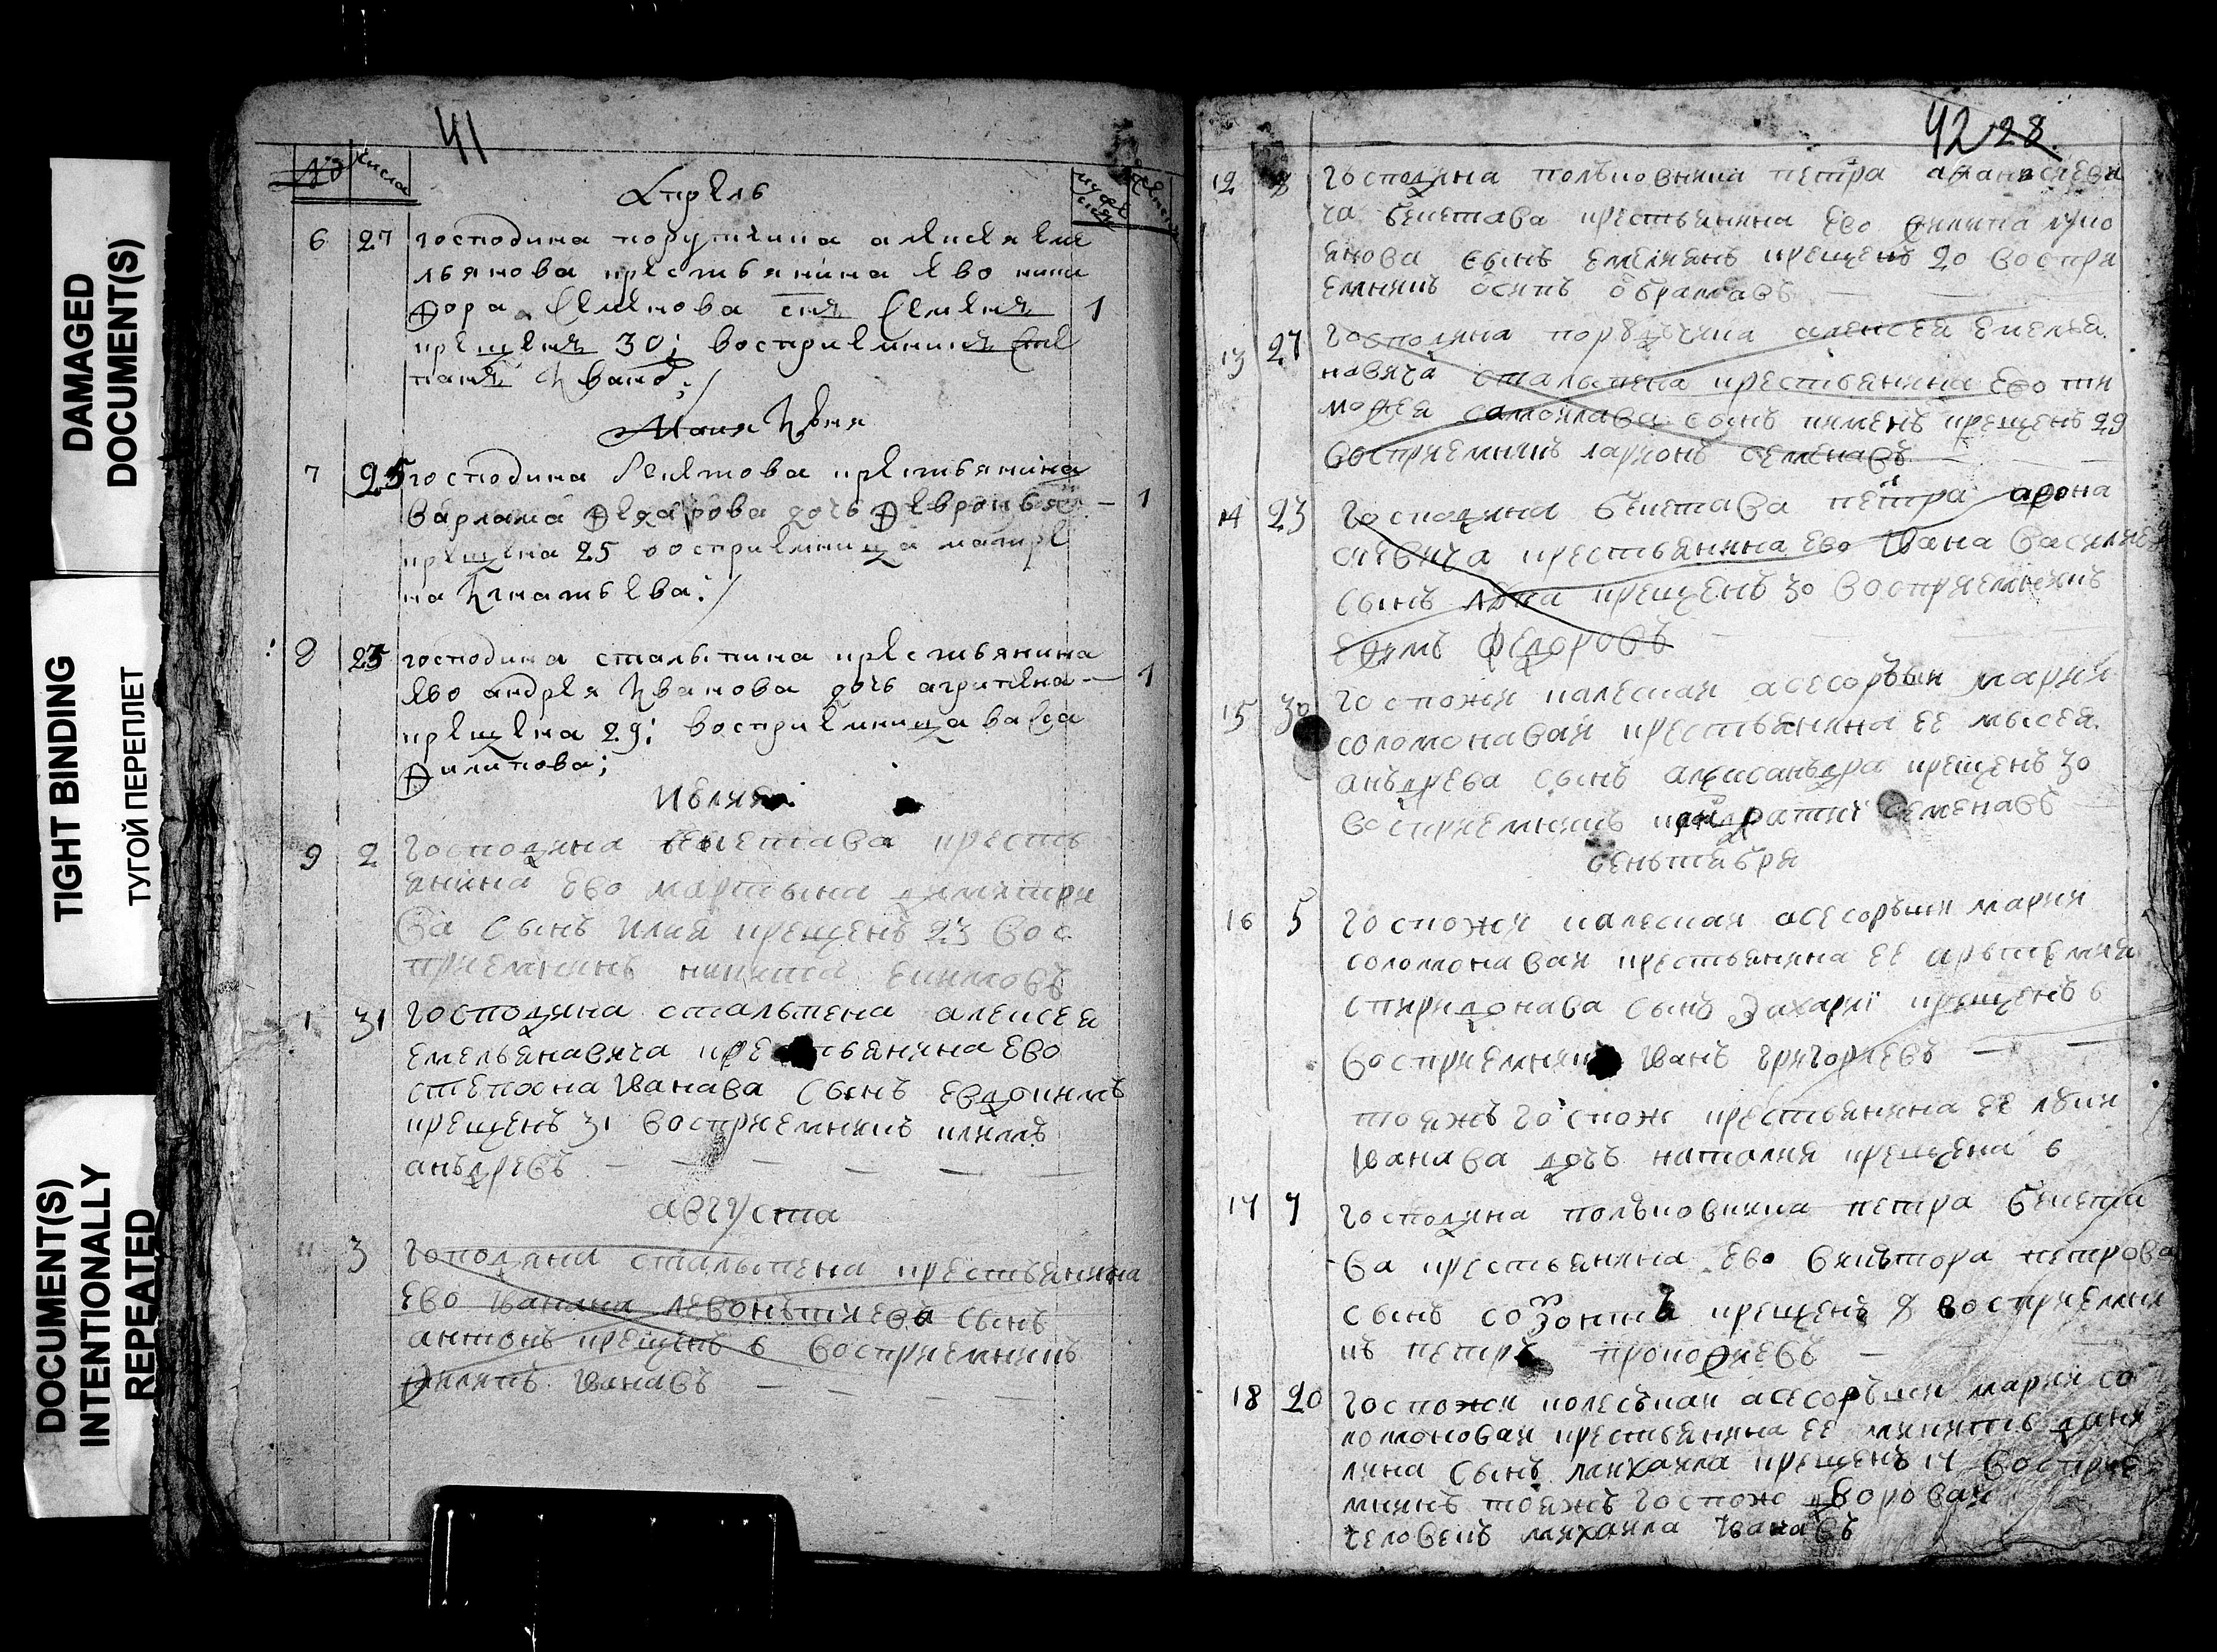 DAMAGED
DOCUMENT(S)
TIGHT BINDING
ТУГОЙ ПЕРЕПЛЕТ
DOCUMENT(S)
INTENTIONALLY
REPEATED
41
№ числа
Апрель
6 27 господина порутчика алексея еме
льянова крестьянина ево ники
фора Семинова снъ Семинъ 1
крещенъ 30; восприемникъ Сте
панъ Иванов:/
Маия Июня
7 25 господина Бекетова крестьянина
варлама Федарова дочь Февронья — 1
крещена 25 восприемница матре
на Игнатьева:/
8 25 господина сталыпина крестьянина
ево андрея Иванова дочь агрипена — 1
крещена 29: восприемница васса
Филипова;
Июля
9 2 господина бекетава кресть
янина ево мартына димитри
ва сынъ илия крещенъ 23 вос
приемникъ никита
1 31 господина сталыпена алексея
емельянавича кре тьянина ево
степана Iванава сынъ евдокимъ
крещенъ 31 восприемникъ климъ
анъдревъ
августа
11 3 гоподина сталыпена крестьянина
ево леонътиева сынъ
антонъ крещенъ 6 восприемникъ
Филипъ Iванавъ
42 28
12 8 господина полъковника петра афанасиеви
ча бекетава крестьянина ево филипа луко
янова сынъ емелиянъ крещенъ 20 воспри
емникъ осипъ обрамавъ
13 27 господина порутчика алексея емелья
навича сталыпена крестьянина ево ти
мофея самоилава сынъ пименъ крещенъ 29
восприемникъ ларионъ семенавъ
14 23 господина бекетава петра афона
сиевича крестьянина ево Iвана василиева
сынъ лука крещенъ 30 восприемникъ
ефимъ федоровъ
15 30 госпожи калескаи асесоръши марии
соломонаваи крестьянина ее мысея
анъдрева сынъ алексанъдра крещенъ 30
восприемникъ семенавъ
сеньтября
16 5 госпожи калескаи асесоръши марии
соломонаваи крестьянина ее арьтемия
спиридонава сынъ Захариi крещенъ 6
восприемник Iванъ григориевъ
тояжъ госпож крестьянина ее луки
Iванава дочъ наталия крещена 6
17 7 господина полъковника петра бекета
ва крестьянина ево викътора петрова
сынъ созонтъ крещенъ 8 восприемни
къ петръ прокофиевъ
18 20 госпожи колесъкаи асесоръши марии со
ломоноваи крестьянина ее микиты дани
лина сынъ михаила крещенъ 14 восприе
мникъ тояжъ госпож двороваи
человекъ михаила Iванавъ